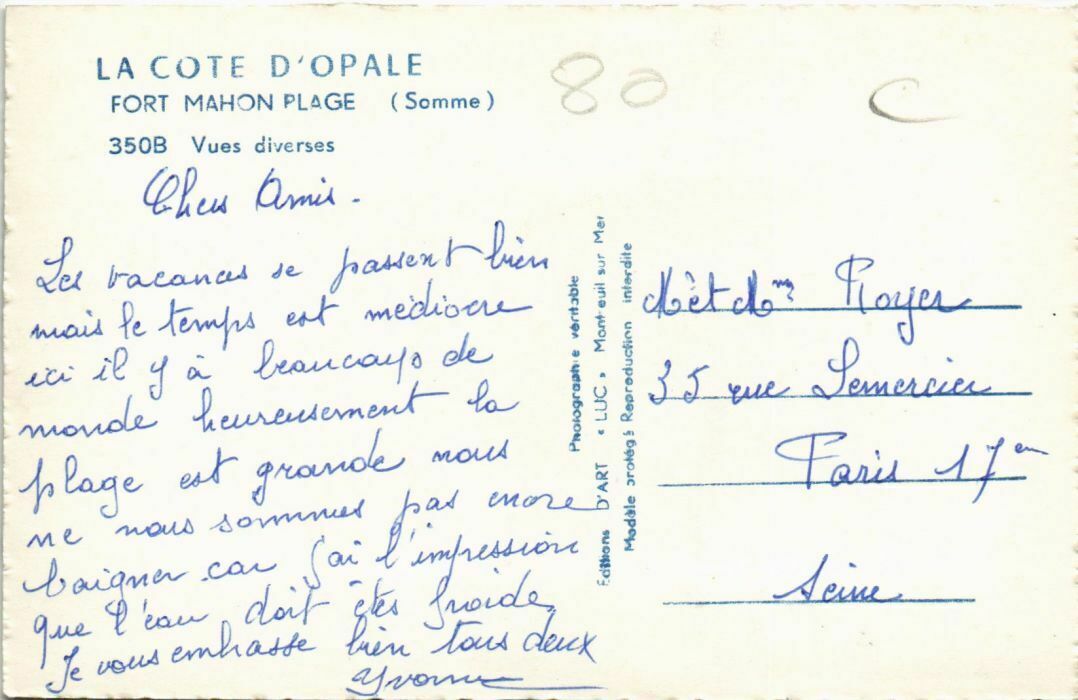 LA COTE D'OPALE
FORT MAHON PLAGE (Somme)
350B Vues diverses
80
C
Chers Amis.
Les vacances se passent bien
mais le temps est médiocre
ici il y à beaucoup de
monde heureusement la
plage est grande nous
ne nous sommes pas encore
baigner car j'ai l'impression
que l'eau doit êtes froide,
Je vous embrasse bien tous deux
Yvonne
Photographie véritable
Editions D'ART « LUC » Montreuil sur Mer
Modèle protégé Reproduction interdite
M et Mme Royer
35 rue Lemercier
Paris 17em
Seine